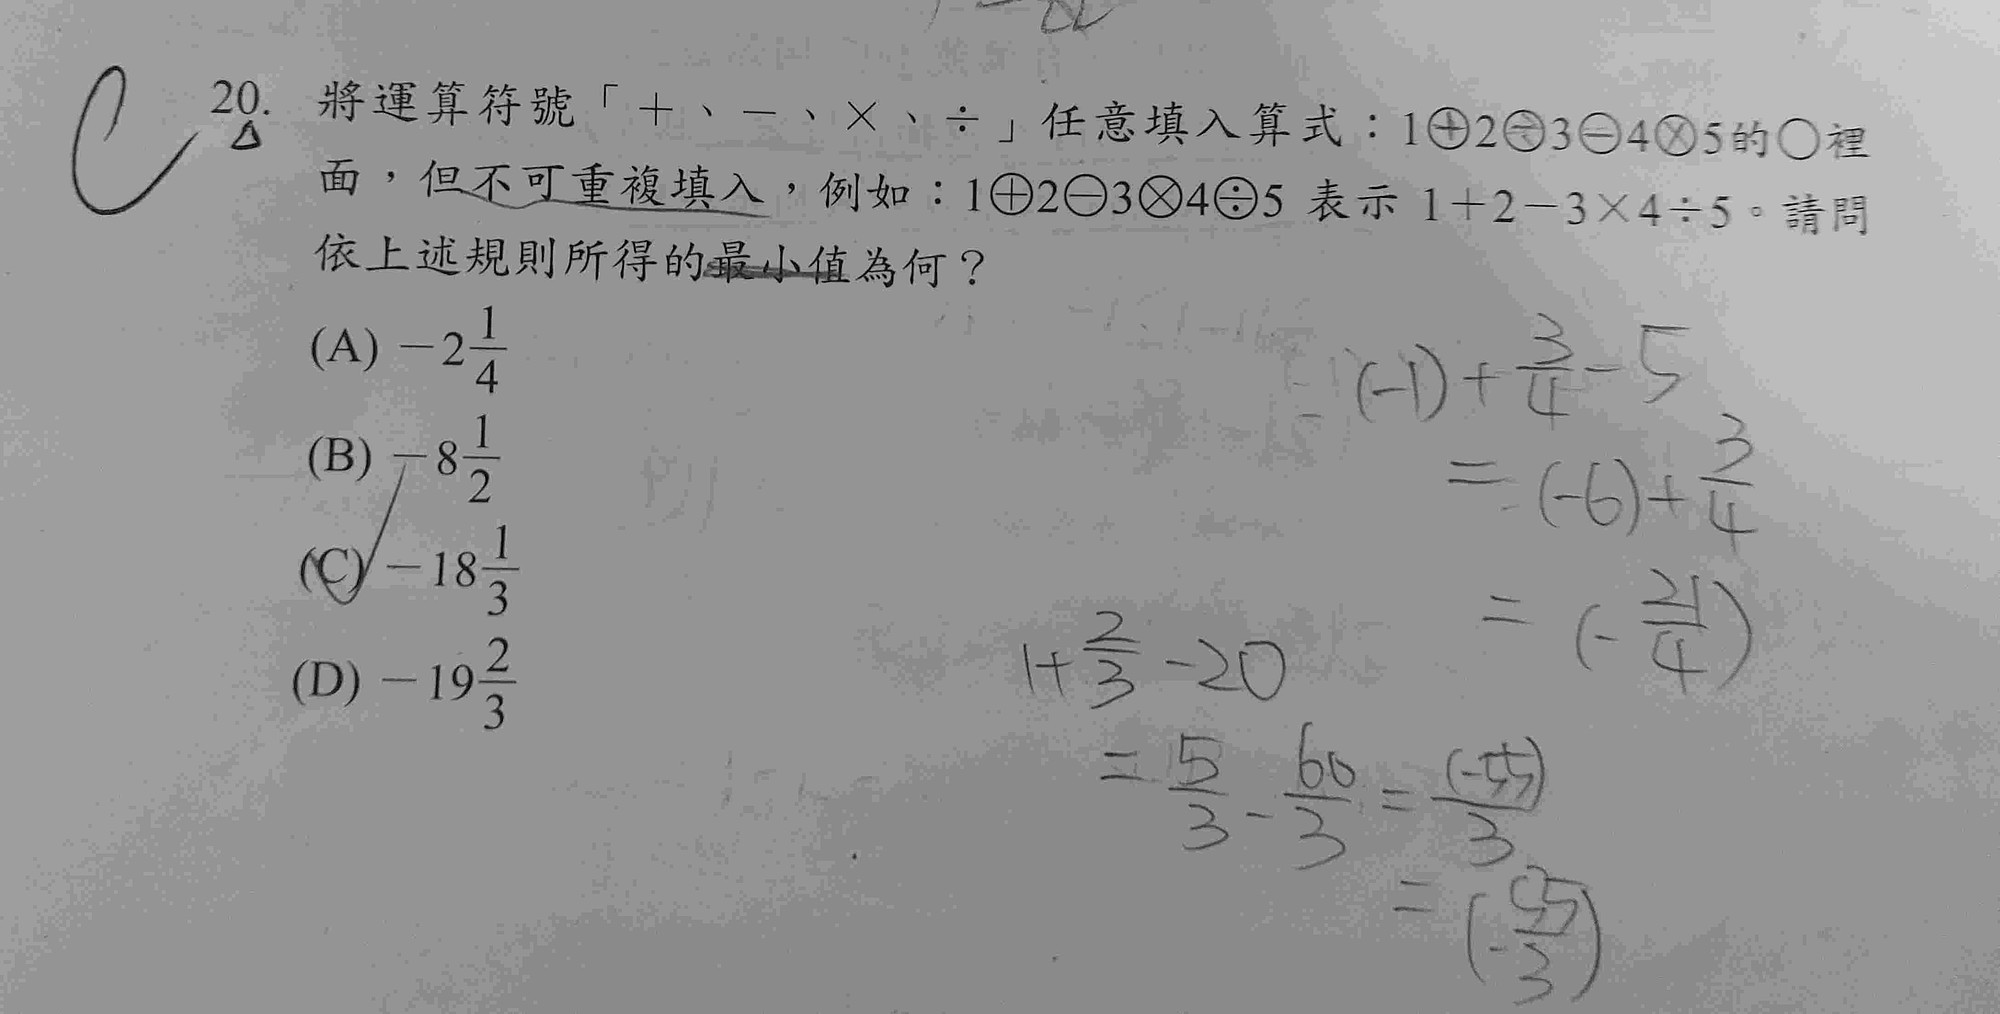 C 20. 將運算符號「+、−、×、÷」任意填入算式：1⊕2⨸3⊖4⊗5的○裡
面，但不可重複填入，例如：1⊕2⊖3⊗4⨸5 表示 1+2−3×4÷5。請問
依上述規則所得的最小值為何？
(A) −2 1/4
(B) −8 1/2
(C) −18 1/3
(D) −19 2/3
(-1) + 3/4 - 5
= (-6) + 3/4
= (- 21/4)
1 + 2/3 - 20
= 5/3 - 60/3 = (-55)/3
= (- 55/3)